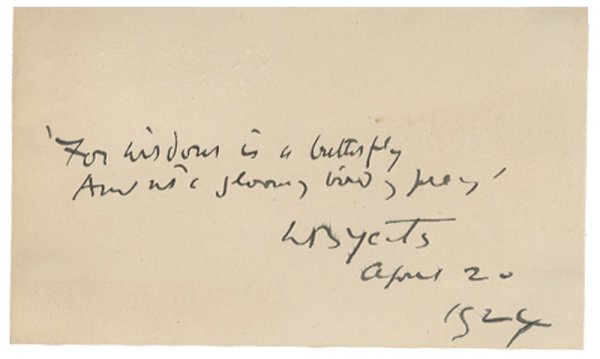 'For wisdom is a butterfly
And not a gloomy bird of prey'
WB Yeats
April 20
1924